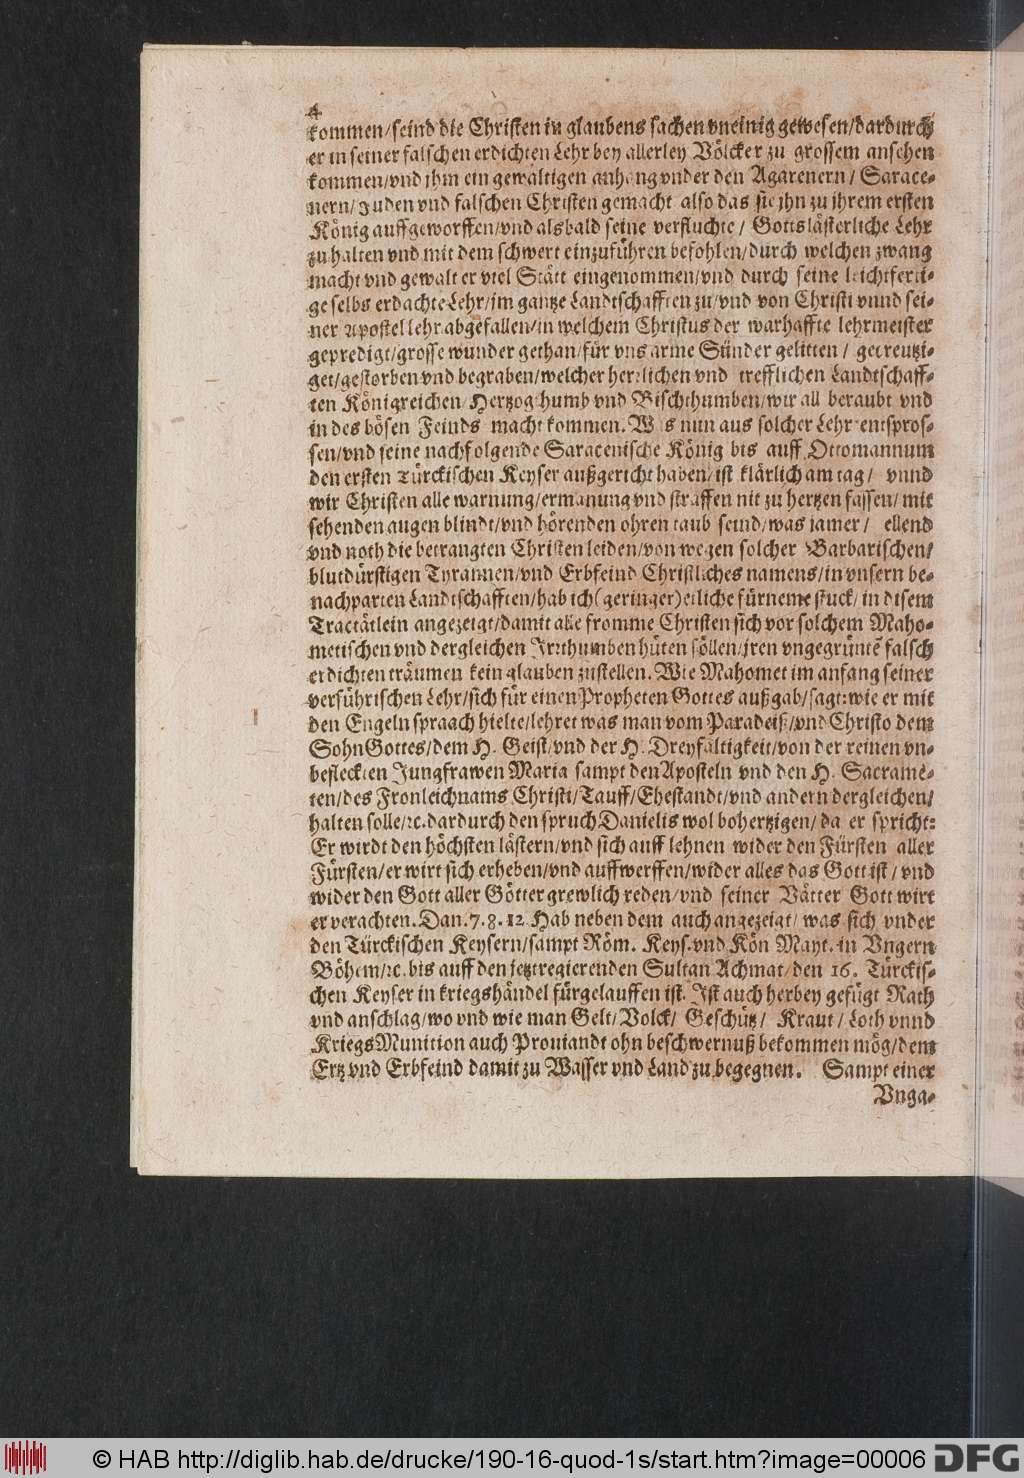 4
kommen/seind die Christen in glaubens sachen vneinig gewesen/dardurch
er in seiner falschen erdichten Lehr bey allerley Völcker zu grossem ansehen
kommen/vnd jhm ein gewaltigen anhang vnder den Agarenern/ Sarace-
nern/Juden vnd falschen Christen gemacht also das sie jhn zu jhrem ersten
König auffgeworffen/vnd alsbald seine verfluchte/ Gottslästerliche Lehr
zu halten vnd mit dem schwert einzuführen befohlen/durch welchen zwang
macht vnd gewalt er viel Stätt eingenommen/vnd durch seine leichtferti-
ge selbs erdachte Lehr/im gantze Landtschafften zu/vnd von Christi vnnd sei-
ner Apostel lehr abgefallen/in welchem Christus der warhaffte lehrmeister
gepredigt/grosse wunder gethan/für vns arme Sünder gelitten/ gecreutzi-
get/gestorben vnd begraben/welcher herrlichen vnd trefflichen Landtschaff-
ten Königreichen/Hertzogthumb vnd Bischthumben/wir all beraubt vnd
in des bösen Feinds macht kommen. Was nun aus solcher Lehr entspros-
sen/vnd seine nachfolgende Saracenische König bis auff Ottomannum
den ersten Türckischen Keyser außgericht haben/ist klärlich am tag/ vnnd
wir Christen alle warnung/ermanung vnd straffen nit zu hertzen fassen/mit
sehenden augen blindt/vnd hörenden ohren taub seind/was jamer/ ellend
vnd noth die betrangten Christen leiden/von wegen solcher Barbarischen/
blutdürstigen Tyrannen/vnd Erbfeind Christliches namens/in vnsern be-
nachparten Landtschafften/hab ich (geringer) etliche fürneme stuck/in disem
Tractätlein angezeigt/damit alle fromme Christen sich vor solchem Maho-
metischen vnd dergleichen Irrthumben hüten söllen/jren vngegrüntē falsch
erdichten träumen kein glauben zustellen. Wie Mahomet im anfang seiner
verführischen Lehr/sich für einen Propheten Gottes außgab/sagt:wie er mit
den Engeln spraach hielte/lehret was man vom Paradeiß/vnd Christo dem
Sohn Gottes/dem H. Geist/vnd der H. Dreyfältigkeit/von der reinen vn-
befleckten Jungfrawen Maria sampt den Aposteln vnd den H. Sacramē-
ten/des Fronleichnams Christi/Tauff/Ehestandt/vnd andern dergleichen/
halten solle/ꝛc. dardurch den spruch Danielis wol bohertzigen/da er spricht:
Er wirdt den höchsten lästern/vnd sich auff lehnen wider den Fürsten aller
Fürsten/er wirt sich erheben/vnd auffwerffen/wider alles das Gott ist/ vnd
wider den Gott aller Götter grewlich reden/vnd seiner Vätter Gott wirt
er verachten. Dan. 7. 8. 12. Hab neben dem auch angezeigt/ was sich vnder
den Türckischen Keysern/sampt Röm. Keys. vnd Kön Mayt. in Vngern
Böhem/ꝛc. bis auff den jetztregierenden Sultan Achmat/den 16. Türckis-
chen Keyser in kriegshändel fürgelauffen ist. Ist auch herbey gefügt Rath
vnd anschlag/wo vnd wie man Gelt/Volck/ Geschütz/ Kraut/ Loth vnnd
KriegsMunition auch Prouiandt ohn beschwernuß bekommen mög/dem
Ertz vnd Erbfeind damit zu Wasser vnd Land zu begegnen. Sampt einer
Vnga-
© HAB http://diglib.hab.de/drucke/190-16-quod-1s/start.htm?image=00006 DFG